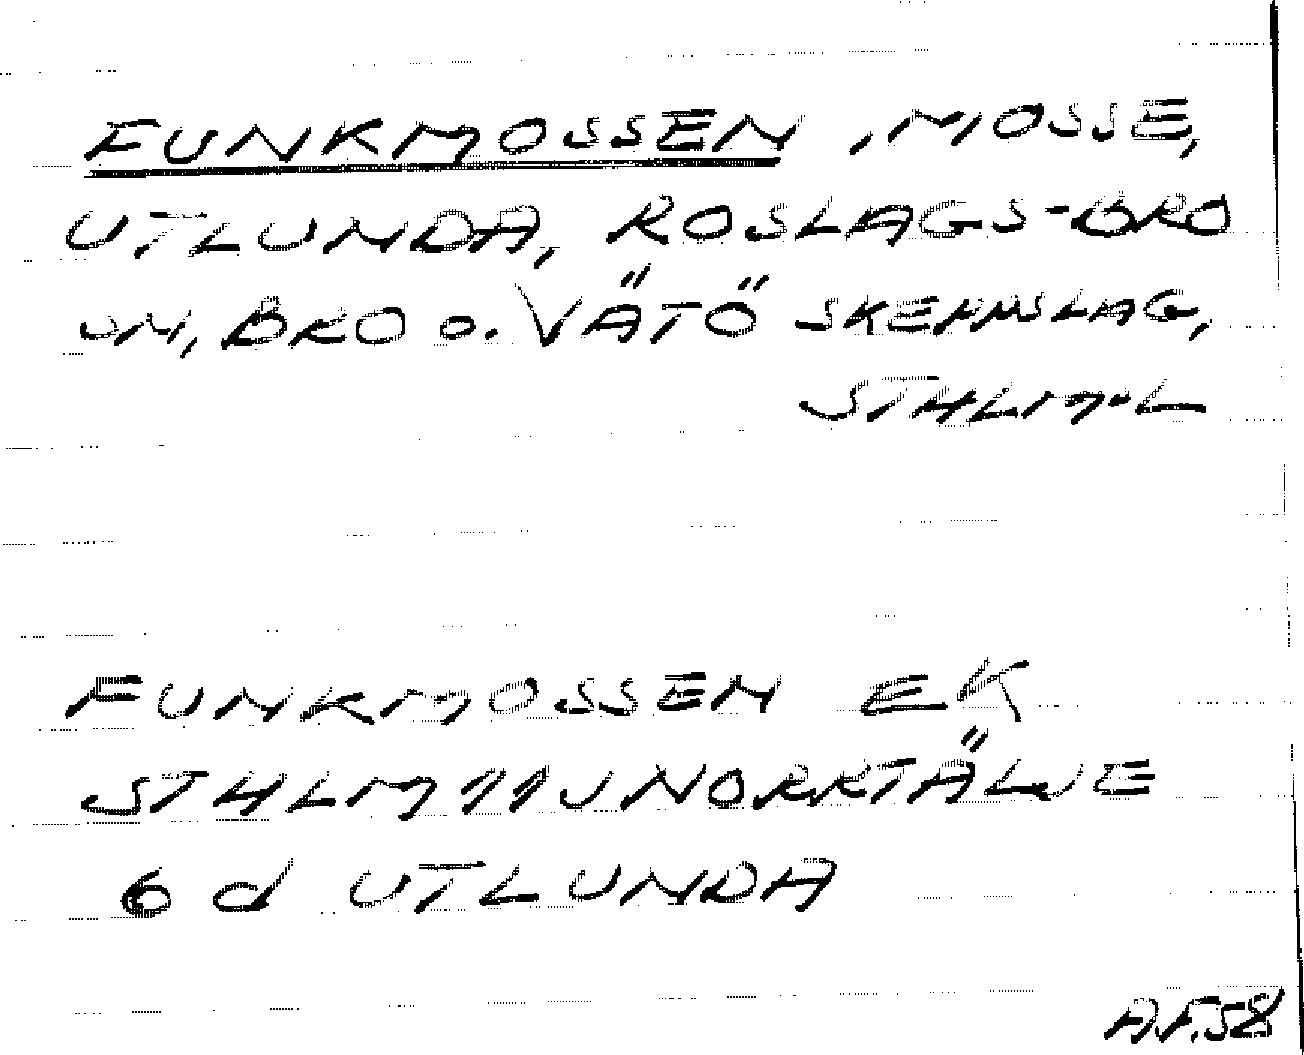 FUNKMOSSEN, MOSSE,
UTLUNDA, ROSLAGS-BRO
SN, BRO o. VÄTÖ SKEPPSLAG,
STHLM-L
FUNKMOSSEN EK
STHLM 11J NORRTÄLJE
6 d UTLUNDA
A.F. 58